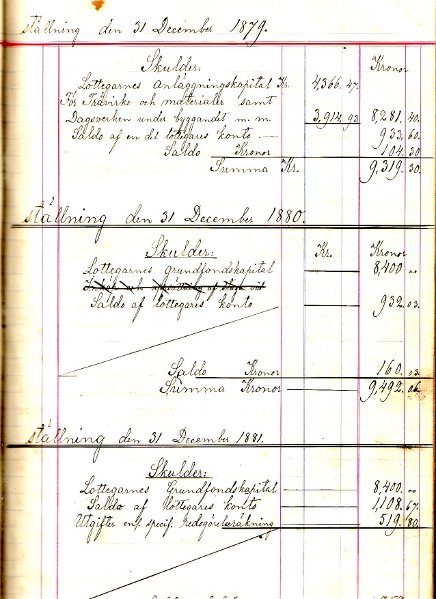 ställning den 31 December 1879.
Skulder: Kronor
Lottegarnes Anläggningskapital Kr. 4,366. 47.
För Trävirke och materialier samt
Dagsverken under byggandet m. m. 3,914. 93 8,281. 40.
Saldo af en del lottegares konto 933. 60.
Saldo Kronor 104. 30
Summa Kr. 9,319. 30.
ställning den 31 December 1880.
Skulder: Kr. Kronor
Lottegarnes grundfondskapital 8,400 "
Saldo af lottegares konto 932. 03.
Saldo Kronor 160. 03
Summa Kronor 9,492. 06
ställning den 31 December 1881.
Skulder:
Lottegarnes Grundfondskapital 8,400. "
Saldo af lottegares konto 1,108. 67.
Utgifter enl. specif. redogöreberäkning 519. 80.